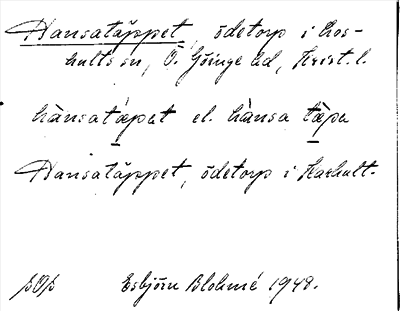 Hansatäppet, ödetorp i Hos-
hults sn, Ö. Göinge hd, Krist. l.
hànsatæpat el. hànsa tæ̀pa
Hansatäppet, ödetorp i Harhult.
Esbjörn Blohmé 1948.